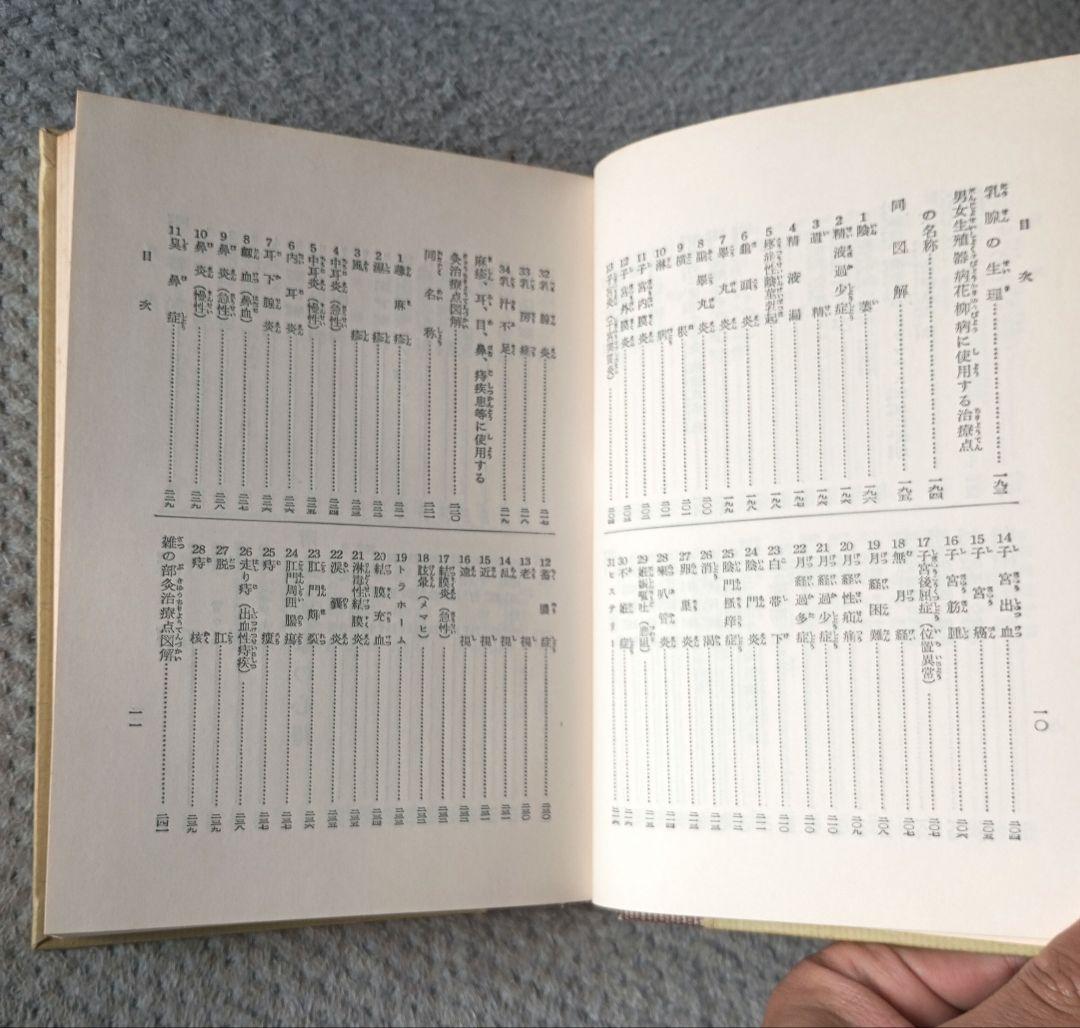 目次
乳腺の生理……一九三
男女生殖器病花柳病に使用する治療点
の名称……一九四
同図解……一九五
1 陰萎……一九六
2 精液過少症……一九六
3 遺精……一九六
4 精液漏……一九七
5 尿浦性陰茎勃起……一九八
6 亀頭炎……一九八
7 睾丸炎……一九九
8 副睾丸炎……二〇〇
9 横根……二〇一
10 淋病……二〇一
11 子宮内膜炎
12 子宮外膜炎
13 子宮実質炎
14 子宮出血……二〇四
15 子宮癌……二〇五
16 子宮筋腫……二〇六
17 子宮後屈症(位置異常)……二〇七
18 無月経……二〇七
19 月経困難……二〇八
20 月経性疝痛……二〇九
21 月経過少症……二一〇
22 月経過多症……二一〇
23 白帯下……二一〇
24 陰門炎……二一一
25 陰門掻痒症……二一二
26 消渇……二一三
27 卵巣炎……二一三
28 喇叭管炎……二一四
29 妊娠嘔吐(悪阻)……二一五
30 不妊症……二一六
31 ヒステリー
一〇
32 乳腺炎……二一七
33 乳房痛……二一八
34 乳汁不足……二一九
麻疹、耳、目、鼻、痔疾患等に使用する
灸治療点図解……二二〇
同名称……二二一
1 蕁麻疹……二二一
2 湿疹……二二二
3 風疹……二二三
4 中耳炎(急性)……二二四
5 中耳炎(慢性)……二二五
6 内耳炎……二二六
7 耳下腺炎……二二六
8 衂血(鼻血)……二二七
9 鼻炎(急性)……二二八
10 鼻炎(慢性)……二二九
11 臭鼻症……二二九
目次
12 蓄膿症……二三〇
13 老視……二三〇
14 乱視……二三一
15 近視……二三一
16 遠視……二三一
17 結膜炎(急性)……二三二
18 眩暈(メマヒ)……二三二
19 トラホーム……二三三
20 結膜充血……二三四
21 淋毒性結膜炎……二三五
22 涙嚢炎……二三五
23 肛門痺裂……二三六
24 肛門周囲膿瘍……二三七
25 痔瘻……二三七
26 走り痔(出血性痔疾)……二三八
27 脱肛……二三九
28 痔核……二三九
雑の部灸治療点図解……二四一
一一